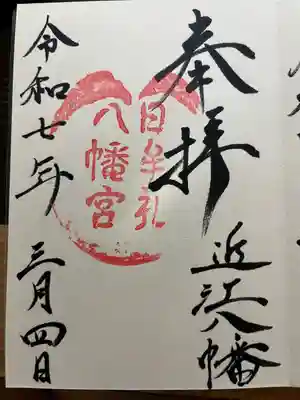 奉拝
近江八幡
日牟礼
八幡宮
令和七年 三月四日